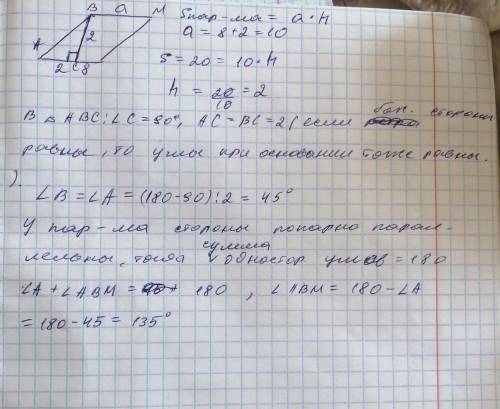 B a M
A 2
2 C 8
Sпар-ма = a · h
a = 8+2 = 10
S = 20 = 10 · h
h = 20/10 = 2
В △ ABC: ∠C = 90°, AC = BC = 2 (если бок. стороны
равны, то углы при основании тоже равны.
).
∠B = ∠A = (180-90):2 = 45°
У пар-ма стороны попарно парал-
лельны, тогда сумма одностор углов = 180
∠A + ∠ABM = 180, ∠ABM = 180 - ∠A
= 180 - 45 = 135°